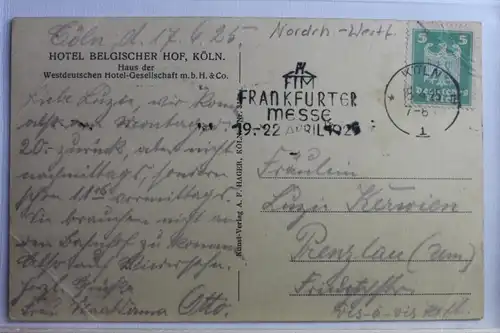 Cöln, d. 17.4.25
HOTEL BELGISCHER HOF, KÖLN.
Haus der
Westdeutschen Hotel-Gesellschaft m. b. H. & Co.
Liebe Luzie, wir kommen
nicht am Montag
20. zurück, aber nicht
nachmittags, sondern
schon 11 vormittags.
Sie brauchen nicht an
den Bahnhof zu kommen
Also auf Wiedersehn.
Herzl. Grüße
Otto.
Kunst-Verlag A. F. HAGER, KÖLN
Nordrh - Westf.
FRANKFURTER
MESSE
19.-22 APRIL 192
5 5
Deutsches
Reich
KÖLN
7-8
1
Fräulein
Luzie Kerwien
Prenzlau (Um)